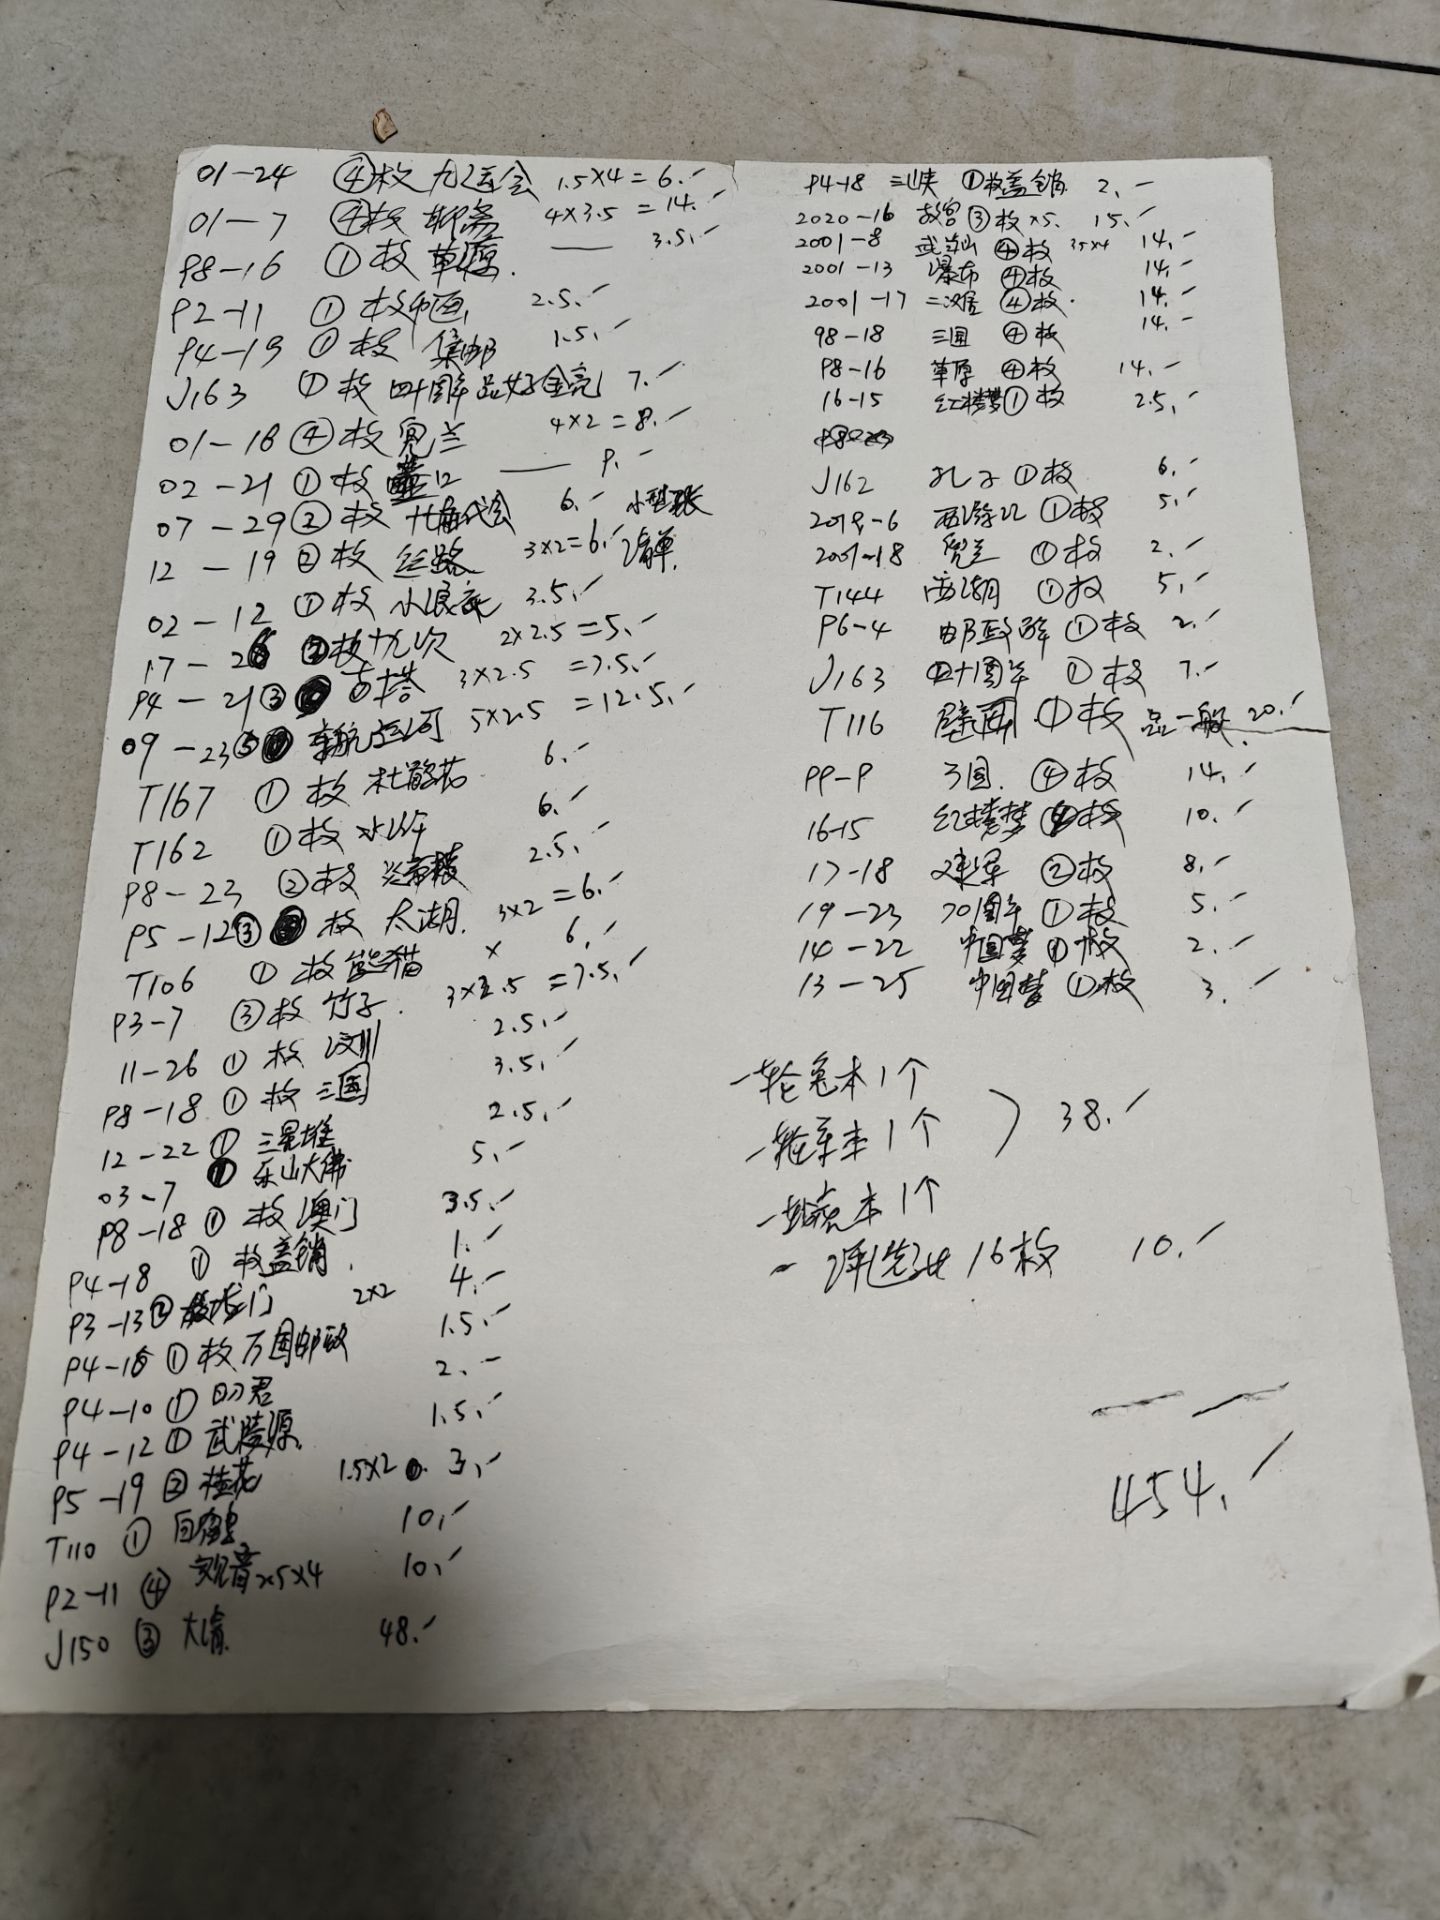 01-24 ④枚 九运会 1.5×4=6.
01-7 ④枚 聊斋 4×3.5=14.
98-16 ①枚 草原. — 3.5.
92-11 ①枚 2.5.
94-19 ①枚 集邮 1.5.
J163 ①枚 四十周年 品好金亮 7.
01-18 ④枚 兜兰 4×2=8.
02-21 ①枚 壶口 — 9.
07-29 ②枚 十七届代会 6. 小型张
12-19 ②枚 丝路 3×2=6. 清单.
02-12 ①枚 小浪底 3.5.
17-26 ②枚 十九次 2×2.5=5.
94-21 ③ 古塔 3×2.5=7.5.
09-23 ⑤ 京杭运河 5×2.5=12.5.
T167 ①枚 杜鹃花 6.
T162 ①枚 6.
98-23 ②枚 炎帝陵 2.5.
95-12 ③枚 太湖. 3×2=6.
T106 ①枚 熊猫 × 6.
93-7 ③枚 竹子. 3×2.5=7.5.
11-26 ①枚 2.5.
98-18 ①枚 三国 3.5.
12-22 ① 三星堆 2.5.
03-7 ① 乐山大佛 5.
98-18 ①枚 澳门 3.5.
94-18 ①枚 盖销. 1.
93-13 ② 龙门 2×2 4.
94-16 ①枚 万国邮政 1.5.
94-10 ① 昭君 2.
94-12 ① 武陵源. 1.5.
95-19 ② 桂花 1.5×2 3.
T110 ① 白鹤 10.
92-11 ④ 观音 ×5×4 10.
J150 ③ 大 48.
94-18 三峡 ①枚盖销. 2.
2020-16 故宫 ③枚 ×5. 15.
2001-8 武当山 ④枚 35×4 14.
2001-13 瀑布 ④枚 14.
2001-17 二滩 ④枚. 14.
98-18 三国 ④枚 14.
98-16 草原 ④枚 14.
16-15 红楼梦 ①枚 2.5.
J162 孔子 ①枚 6.
2019-6 西游记 ①枚 5.
2001-18 兜兰 ①枚 2.
T144 西湖 ①枚 5.
96-4 邮政 ①枚 2.
J163 四十周年 ①枚 7.
T116 壁画 ①枚 品一般. 20.
99-9 三国. ④枚 14.
16-15 红楼梦 枚 10.
17-18 建军 ②枚 8.
19-23 70周年 ①枚 5.
14-22 中国梦 ①枚 2.
13-25 中国梦 ①枚 3.
一轮兔本1个
一轮本1个 ) 38.
一轮本1个
一评选张 16枚 10.
454.